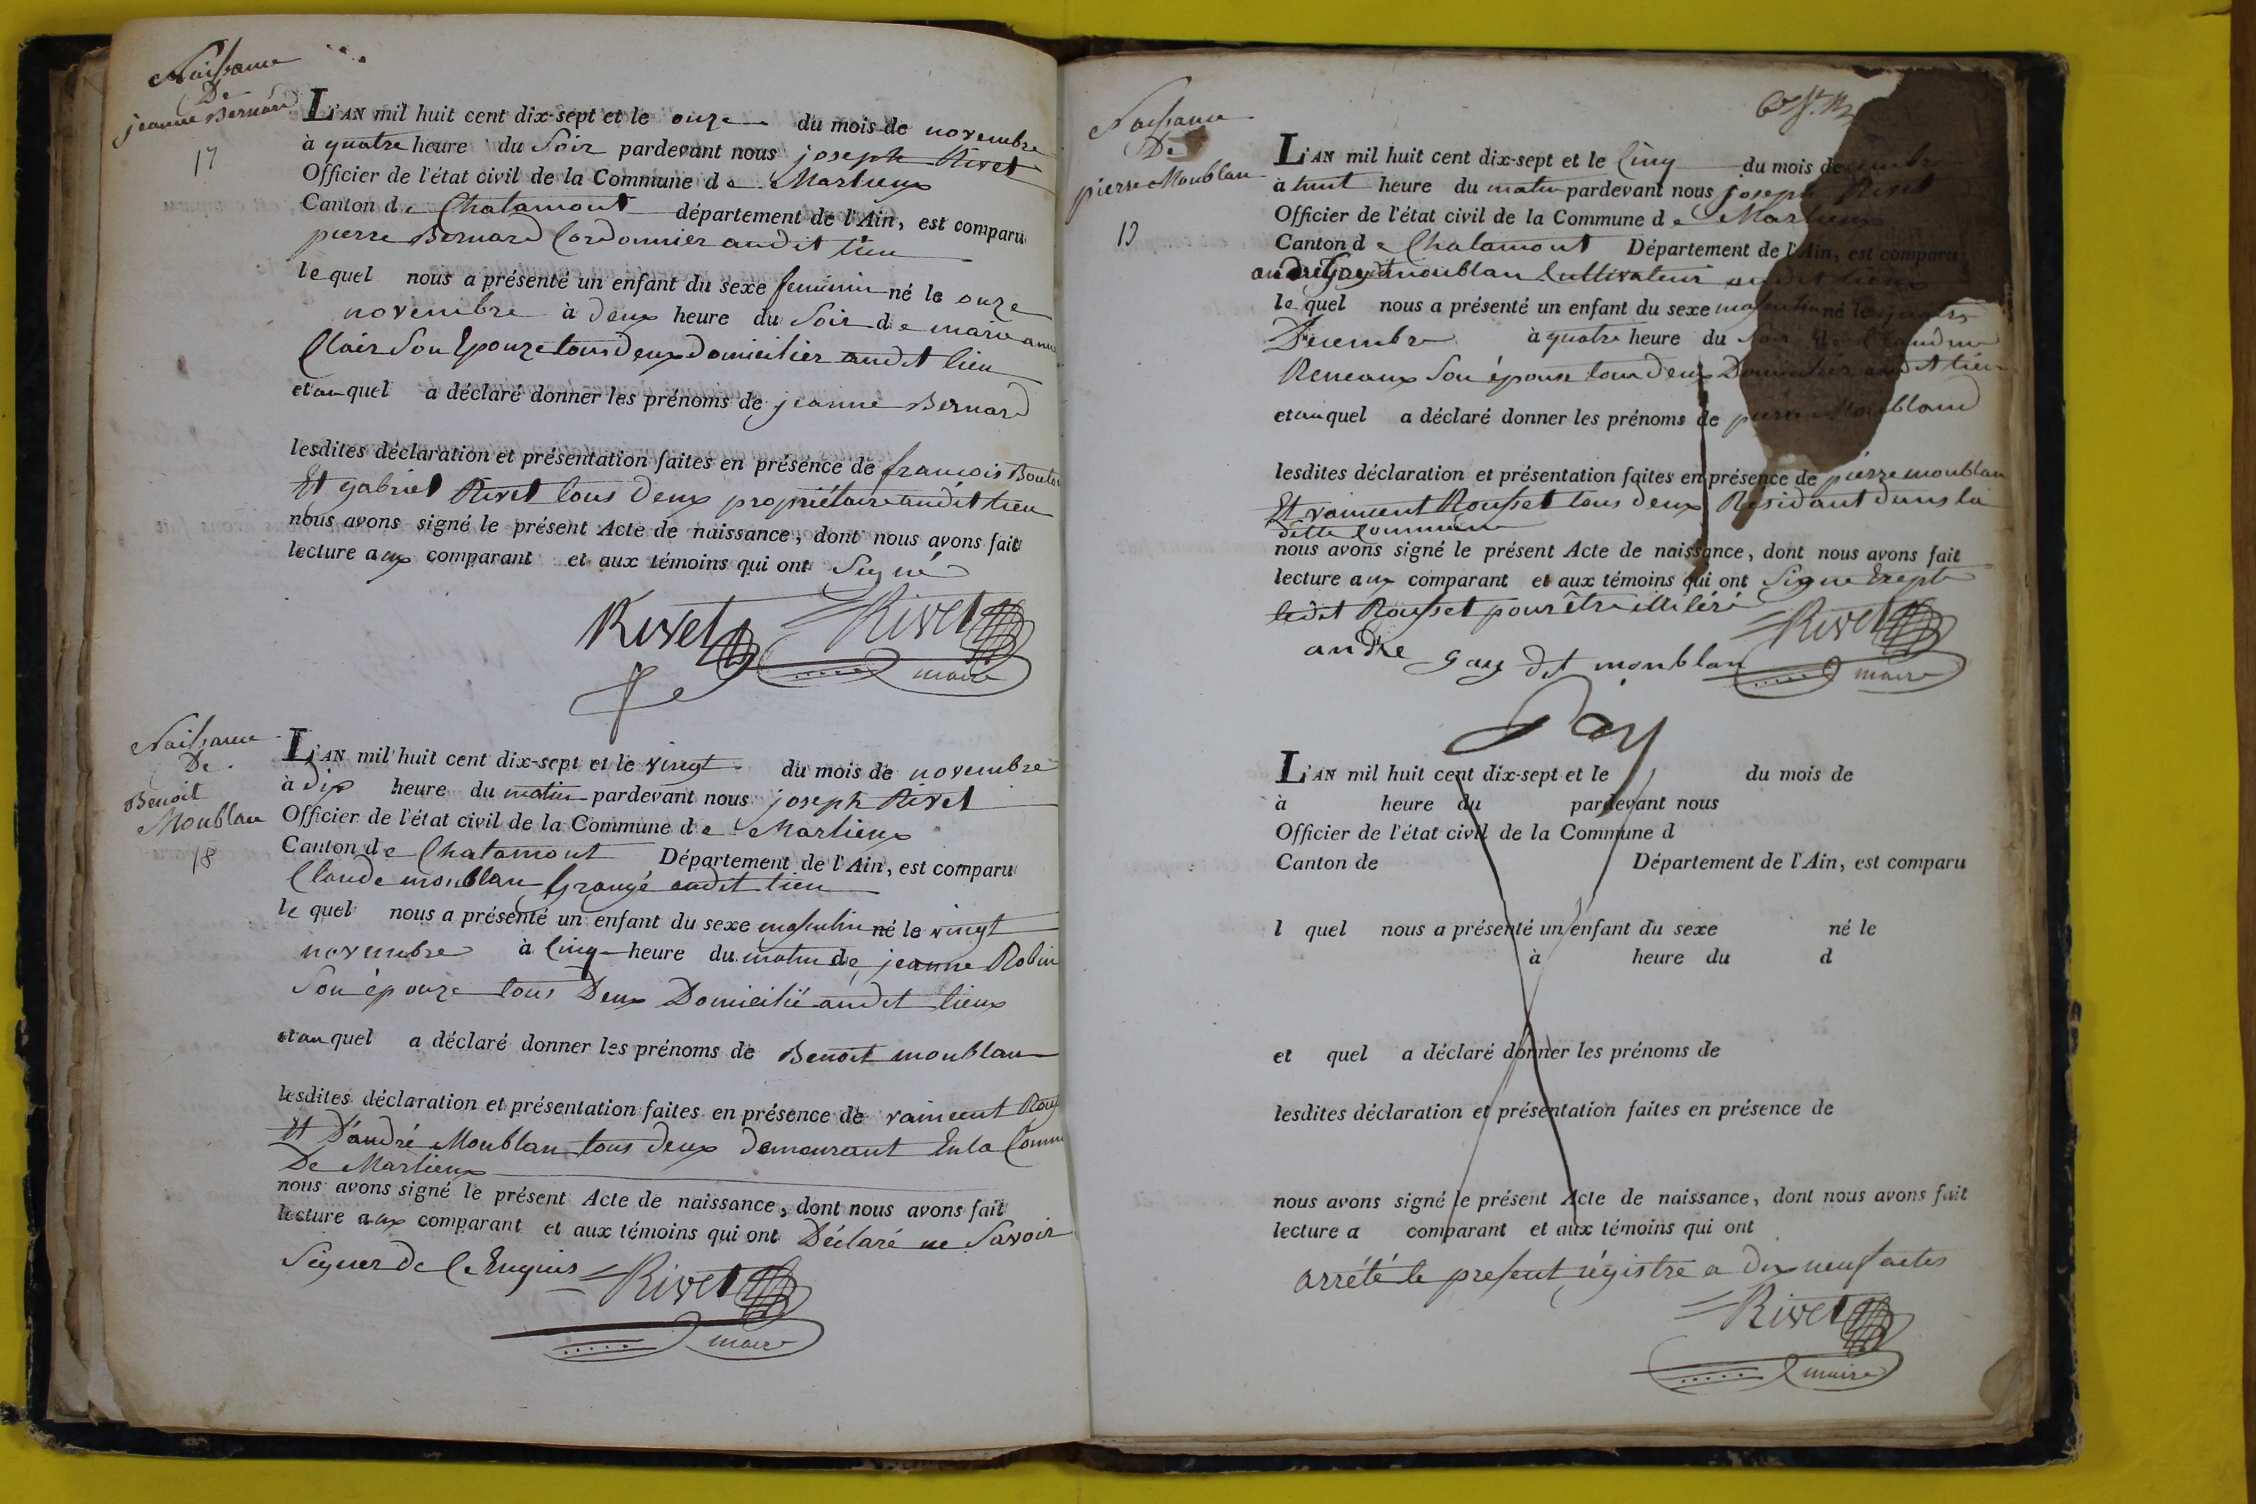 Naissance
De
jeanne Bernard
17
L'AN mil huit cent dix-sept et le onze du mois de novembre
à quatre heure du Soir pardevant nous joseph Rivet
Officier de l'état civil de la Commune de Marlieux
Canton de Chalamont département de l'Ain, est comparu
pierre Bernard Cordonnier audit lieu
le quel nous a présenté un enfant du sexe feminin né le onze
novembre à deux heure du Soir de marie anne
Clair Son Epouze tous deux domicilier audit lieu
et au quel a déclaré donner les prénoms de jeanne Bernard
lesdites déclaration et présentation faites en présence de francois
Et gabriel Rivet tous deux propriétaire audit lieu
nous avons signé le présent Acte de naissance, dont nous avons fait
lecture aux comparant et aux témoins qui ont Signé
Rivet Rivet
maire
Naissance
De
Benoit
Moublan
18
L'AN mil huit cent dix-sept et le vingt du mois de novembre
à dix heure du matin pardevant nous joseph Rivet
Officier de l'état civil de la Commune de Marlieux
Canton de Chalamont Département de l'Ain, est comparu
Claude moublan Grangé audit lieu
le quel nous a présenté un enfant du sexe masculin né le vingt
novembre à Cinq heure du matin de jeanne Robin
Son épouze tous Deux Domicilié audit lieux
et au quel a déclaré donner les prénoms de Benoit moublan
lesdites déclaration et présentation faites en présence de vaincent
Et D'andré Moublan tous deux demeurant En la
De Marlieux
nous avons signé le présent Acte de naissance, dont nous avons fait
lecture aux comparant et aux témoins qui ont Déclaré ne Savoir
Signer De Ce Enquis Rivet
maire
Naissance
De
pierre Moublan
19
L'AN mil huit cent dix-sept et le Cinq du mois de
à huit heure du matin pardevant nous joseph Rivet
Officier de l'état civil de la Commune de Marlieux
Canton de Chalamont Département de l'Ain, est comparu
andré Gay dit moublan Cultivateur audit lieux
le quel nous a présenté un enfant du sexe masculin né le quatre
Décembre à quatre heure du Soir de
Reneaux Son épouse tous deux Domicilier audit lieu
et au quel a déclaré donner les prénoms de pierre Moubland
lesdites déclaration et présentation faites en présence de pierre moublan
Et vaincent Rousset tous deux Residant dans la
ditte Commune
nous avons signé le présent Acte de naissance, dont nous avons fait
lecture aux comparant et aux témoins qui ont Signe Exepte
ledit Rousset pour être illiléré
Rivet
andre Gay dit moublan
maire
Gay
L'AN mil huit cent dix-sept et le du mois de
à heure du pardevant nous
Officier de l'état civil de la Commune d
Canton de Département de l'Ain, est comparu
l quel nous a présenté un enfant du sexe né le
à heure du d
et quel a déclaré donner les prénoms de
lesdites déclaration et présentation faites en présence de
nous avons signé le présent Acte de naissance, dont nous avons fait
lecture a comparant et aux témoins qui ont
arrété le présent régistre a dix neuf actes
Rivet
maire